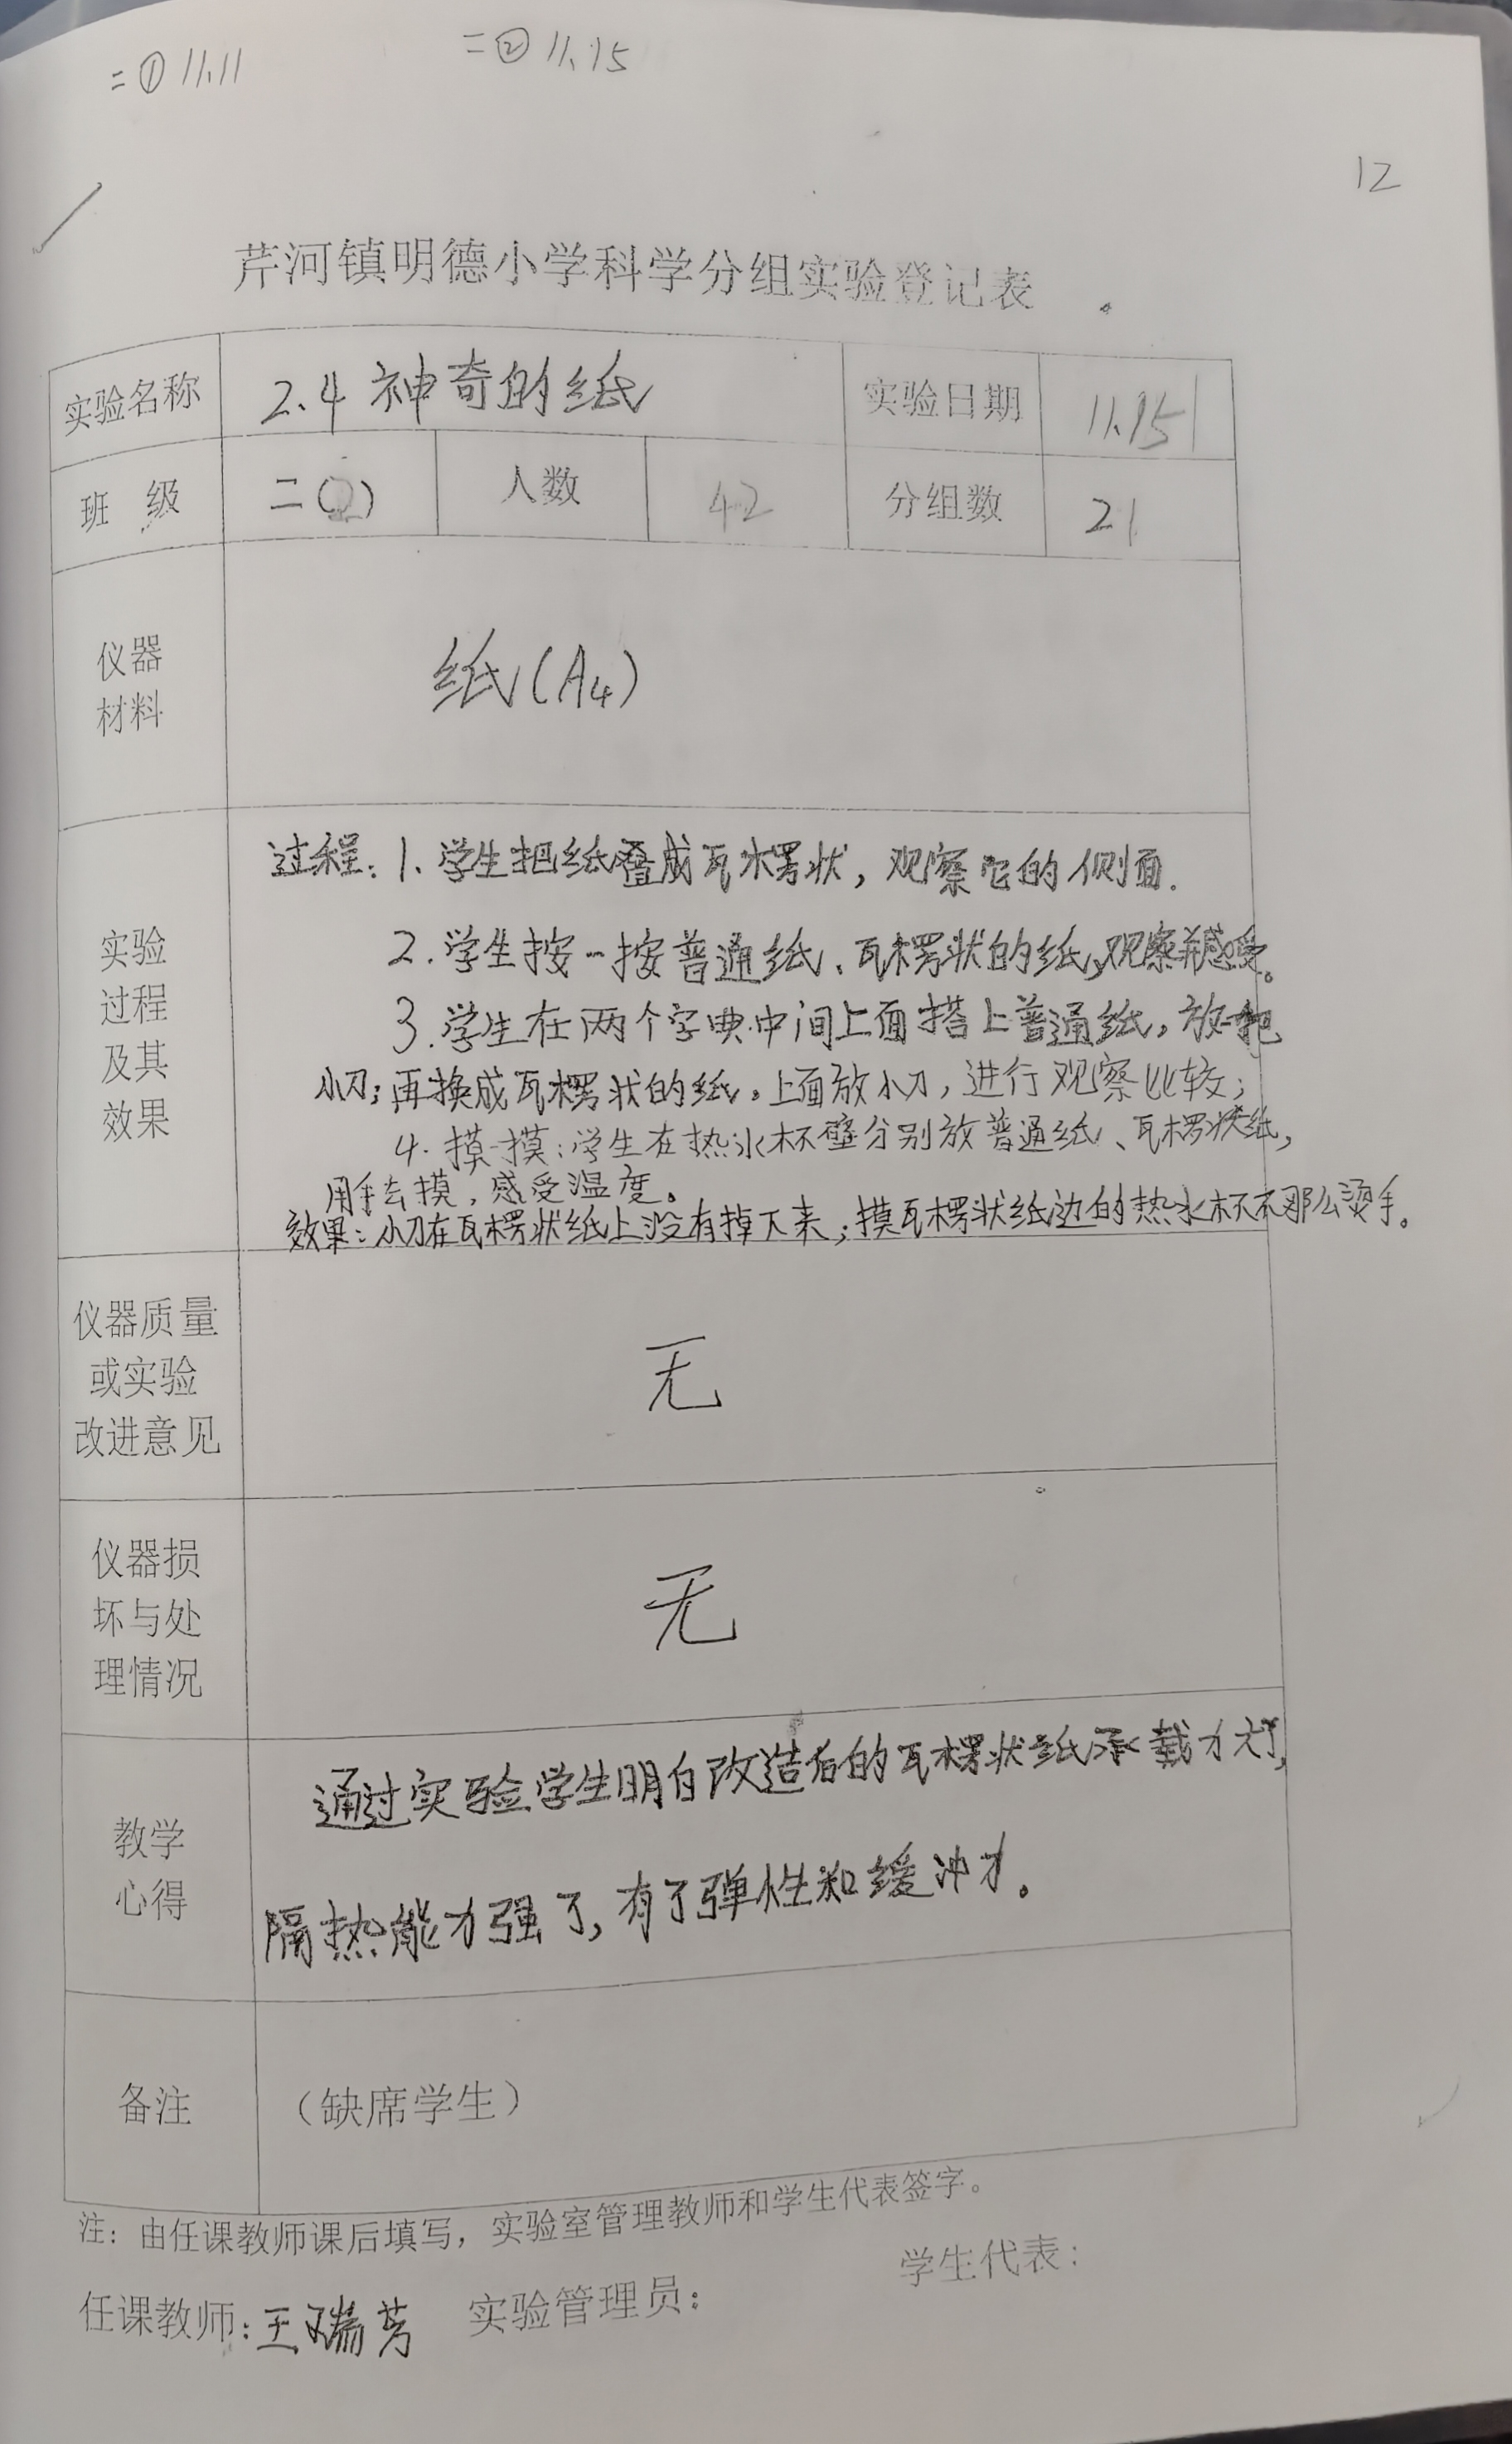 二① 11.11
二② 11.15
12
芹河镇明德小学科学分组实验登记表
实验名称 2.4 神奇的纸 实验日期 11.15
班 级 二(2) 人数 42 分组数 21
仪器
材料
纸(A4)
实验
过程
及其
效果
过程:1.学生把纸叠成瓦楞状,观察它的侧面.
2.学生按一按普通纸、瓦楞状的纸,观察并感受。
3.学生在两个字典中间上面搭上普通纸,放一把
小刀;再换成瓦楞状的纸。上面放小刀,进行观察比较;
4.摸一摸:学生在热水杯壁分别放普通纸、瓦楞状纸,
用手去摸,感受温度。
效果:小刀在瓦楞状纸上没有掉下来;摸瓦楞状纸边的热水杯不那么烫手。
仪器质量
或实验
改进意见
无
仪器损
坏与处
理情况
无
教学
心得
通过实验学生明白改造后的瓦楞状纸承载力大了,
隔热能力强了,有了弹性和缓冲力。
备注 (缺席学生)
注:由任课教师课后填写,实验室管理教师和学生代表签字。
任课教师:王瑞芳 实验管理员: 学生代表: